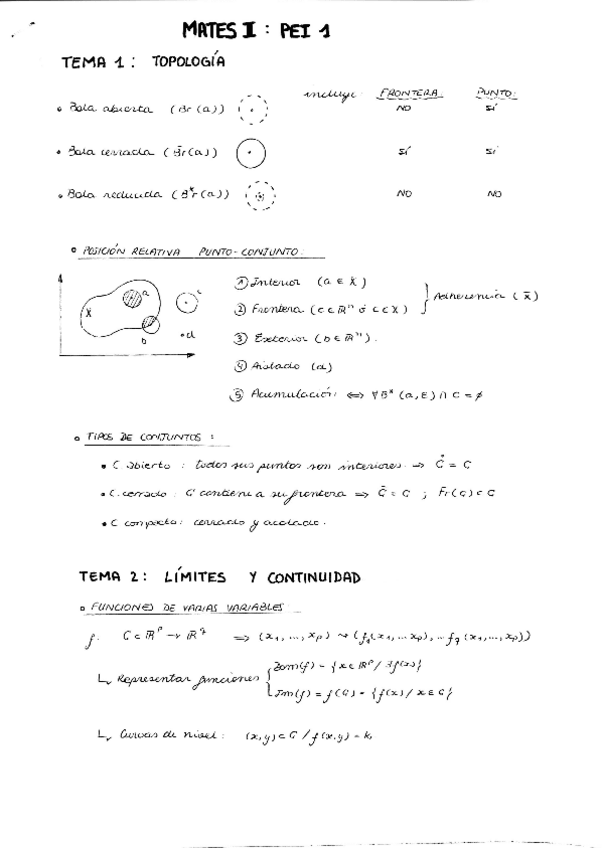 MATES II : PEI 1
TEMA 1 : TOPOLOGÍA
incluye: FRONTERA: PUNTO:
• Bola abierta (Br(a)) NO SÍ
• Bola cerrada (B̄r(a)) SÍ SÍ
• Bola reducida (B*r(a)) NO NO
• POSICIÓN RELATIVA PUNTO-CONJUNTO:
① Interior (a ∈ X)
② Frontera (c ∈ ℝⁿ ó c ∈ X) } Adherencia (x̄)
③ Exterior (b ∈ ℝⁿ).
④ Aislado (d)
⑤ Acumulación: ⇔ ∀B*(a,E) ∩ C = ∅
X a b c d
• TIPOS DE CONJUNTOS :
• C abierto : todos sus puntos son interiores ⇒ C̊ = C
• C. cerrado : C contiene a su frontera ⇒ C̄ = C ; Fr(C) ⊂ C
• C compacto: cerrado y acotado.
TEMA 2 : LÍMITES Y CONTINUIDAD
▫ FUNCIONES DE VARIAS VARIABLES
f: C ⊂ ℝᵖ → ℝ^q ⇒ (x₁, ..., xp) → (f₁(x₁, ... xp), ... fq(x₁, ..., xp))
↳ Representar funciones { Dom(f) = {x ∈ ℝᵖ / ∃f(x)}
Im(f) = f(C) = {f(x) / x ∈ C}
↳ Curvas de nivel : (x,y) ⊂ C / f(x,y) = k